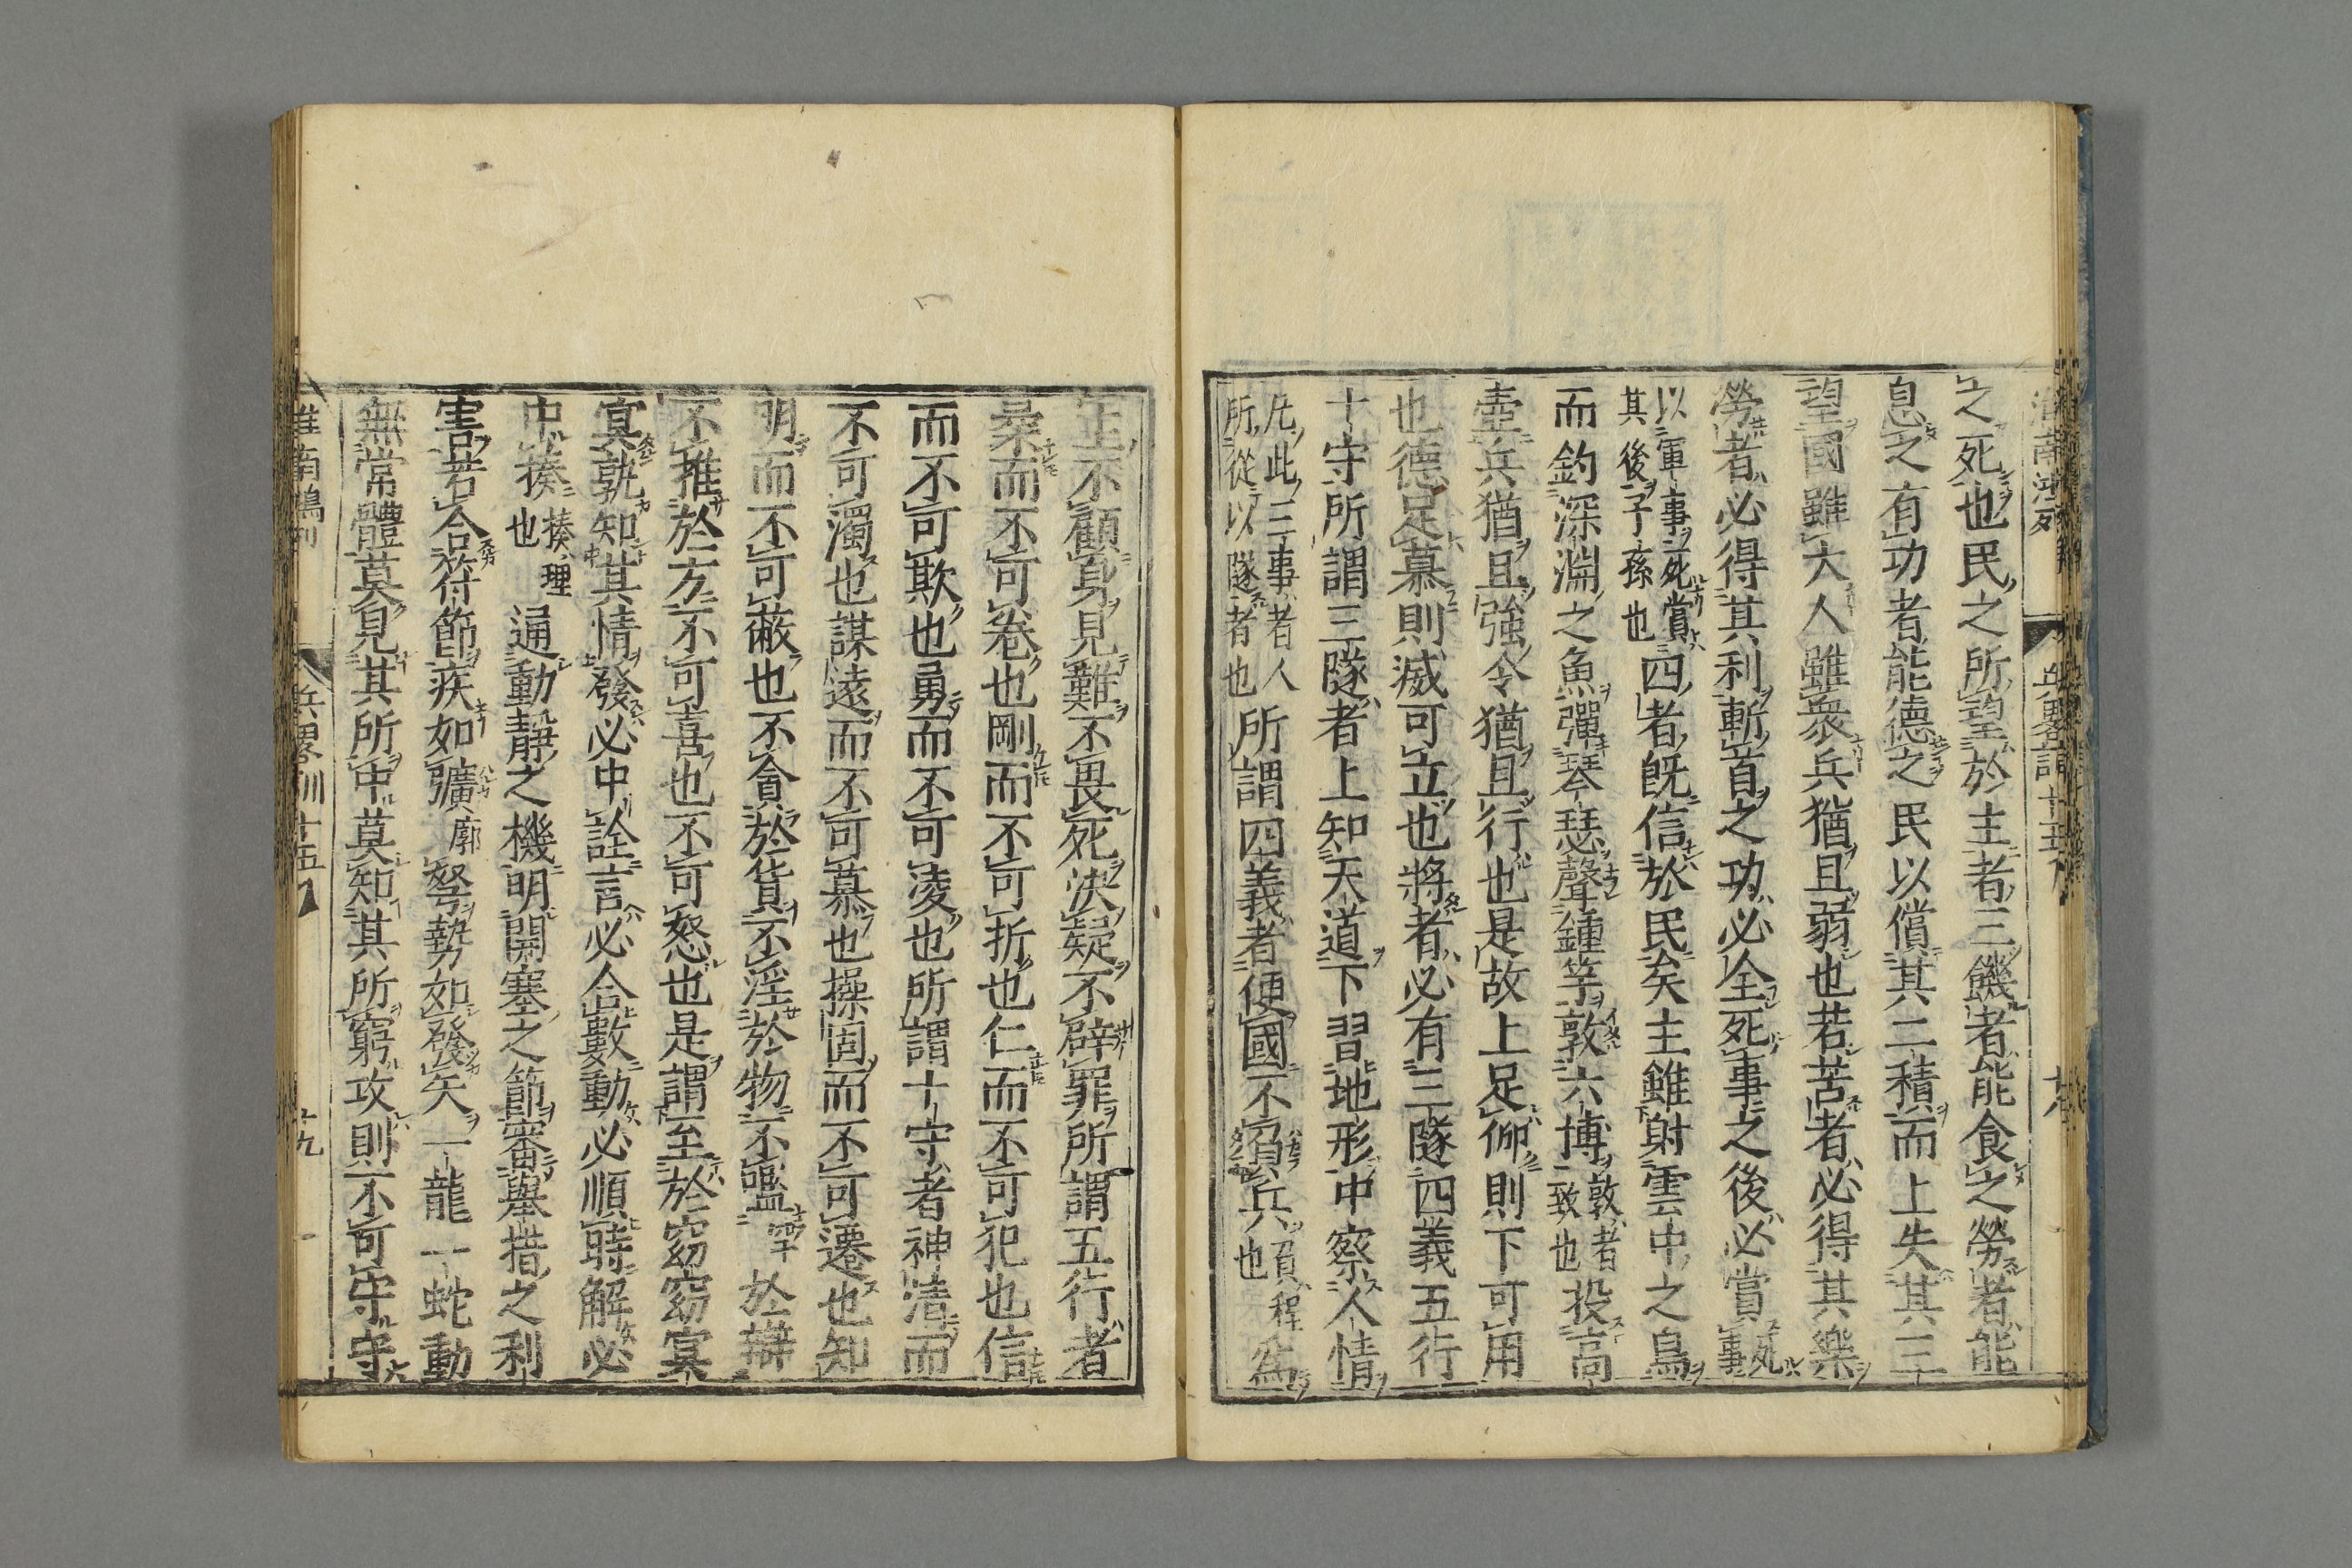 之死也民之所望於主者三饑者能食之勞者能
息之有功者能德之民以償其二積而上失其三
望國雖大人雖衆兵猶且弱也若苦者必得其樂
勞者必得其利斬首之功必全死事之後必賞死事
以軍事死賞
其後子孫也
四者旣信於民矣主雖射雲中之鳥
而釣深淵之魚彈琴瑟聲鍾竽敦六博敦者
致也
投高
壺兵猶且強令猶且行也是故上足仰則下可用
也德足慕則威可立也將者必有三隧四義五行
十守所謂三隧者上知天道下習地形中察人情
凡此三事者人
所從以隧者也
所謂四義者便國不負兵負程
也
爲
主不顧身見難不畏死決疑不辟罪所謂五行者
柔而不可卷也剛而不可折也仁而不可犯也信
而不可欺也勇而不可凌也所謂十守者神清而
不可濁也謀遠而不可慕也操固而不可遷也知
明而不可蔽也不貪於貨不淫於物不嚂於辯
不推於方不可喜也不可怒也是謂至於窈窈冥
冥孰知其情發必中詮言必合數動必順時解必
中揍揍理
也
通動靜之機明開塞之節審舉措之利
害若合符節疾如彍廓弩勢如發矢一龍一蛇動
無常體莫見其所中莫知其所窮攻則不可守守
淮南鴻列
兵畧訓十五
十九